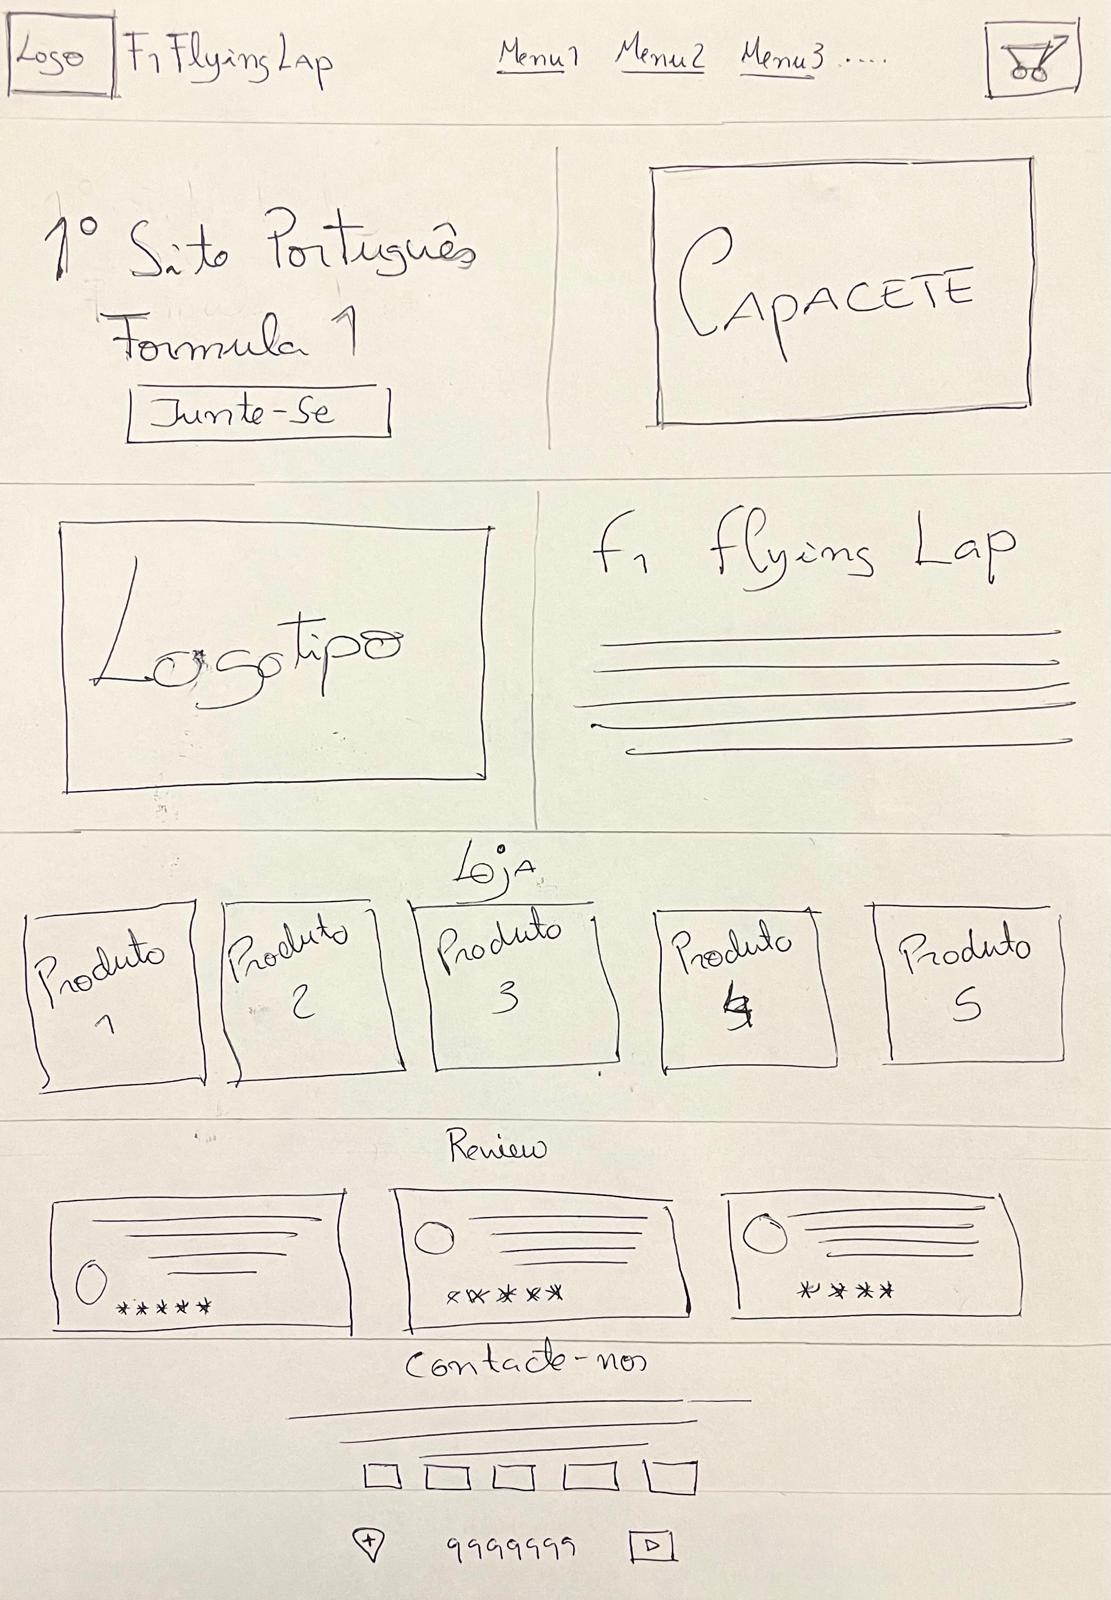 Logo F1 Flying Lap Menu1 Menu2 Menu3 ....
1º Site Português
Formula 1
Junte-Se
CAPACETE
Logotipo
F1 Flying Lap
Loja
Produto
1
Produto
2
Produto
3
Produto
4
Produto
5
Review
*****
*****
****
Contacte-nos
9999999